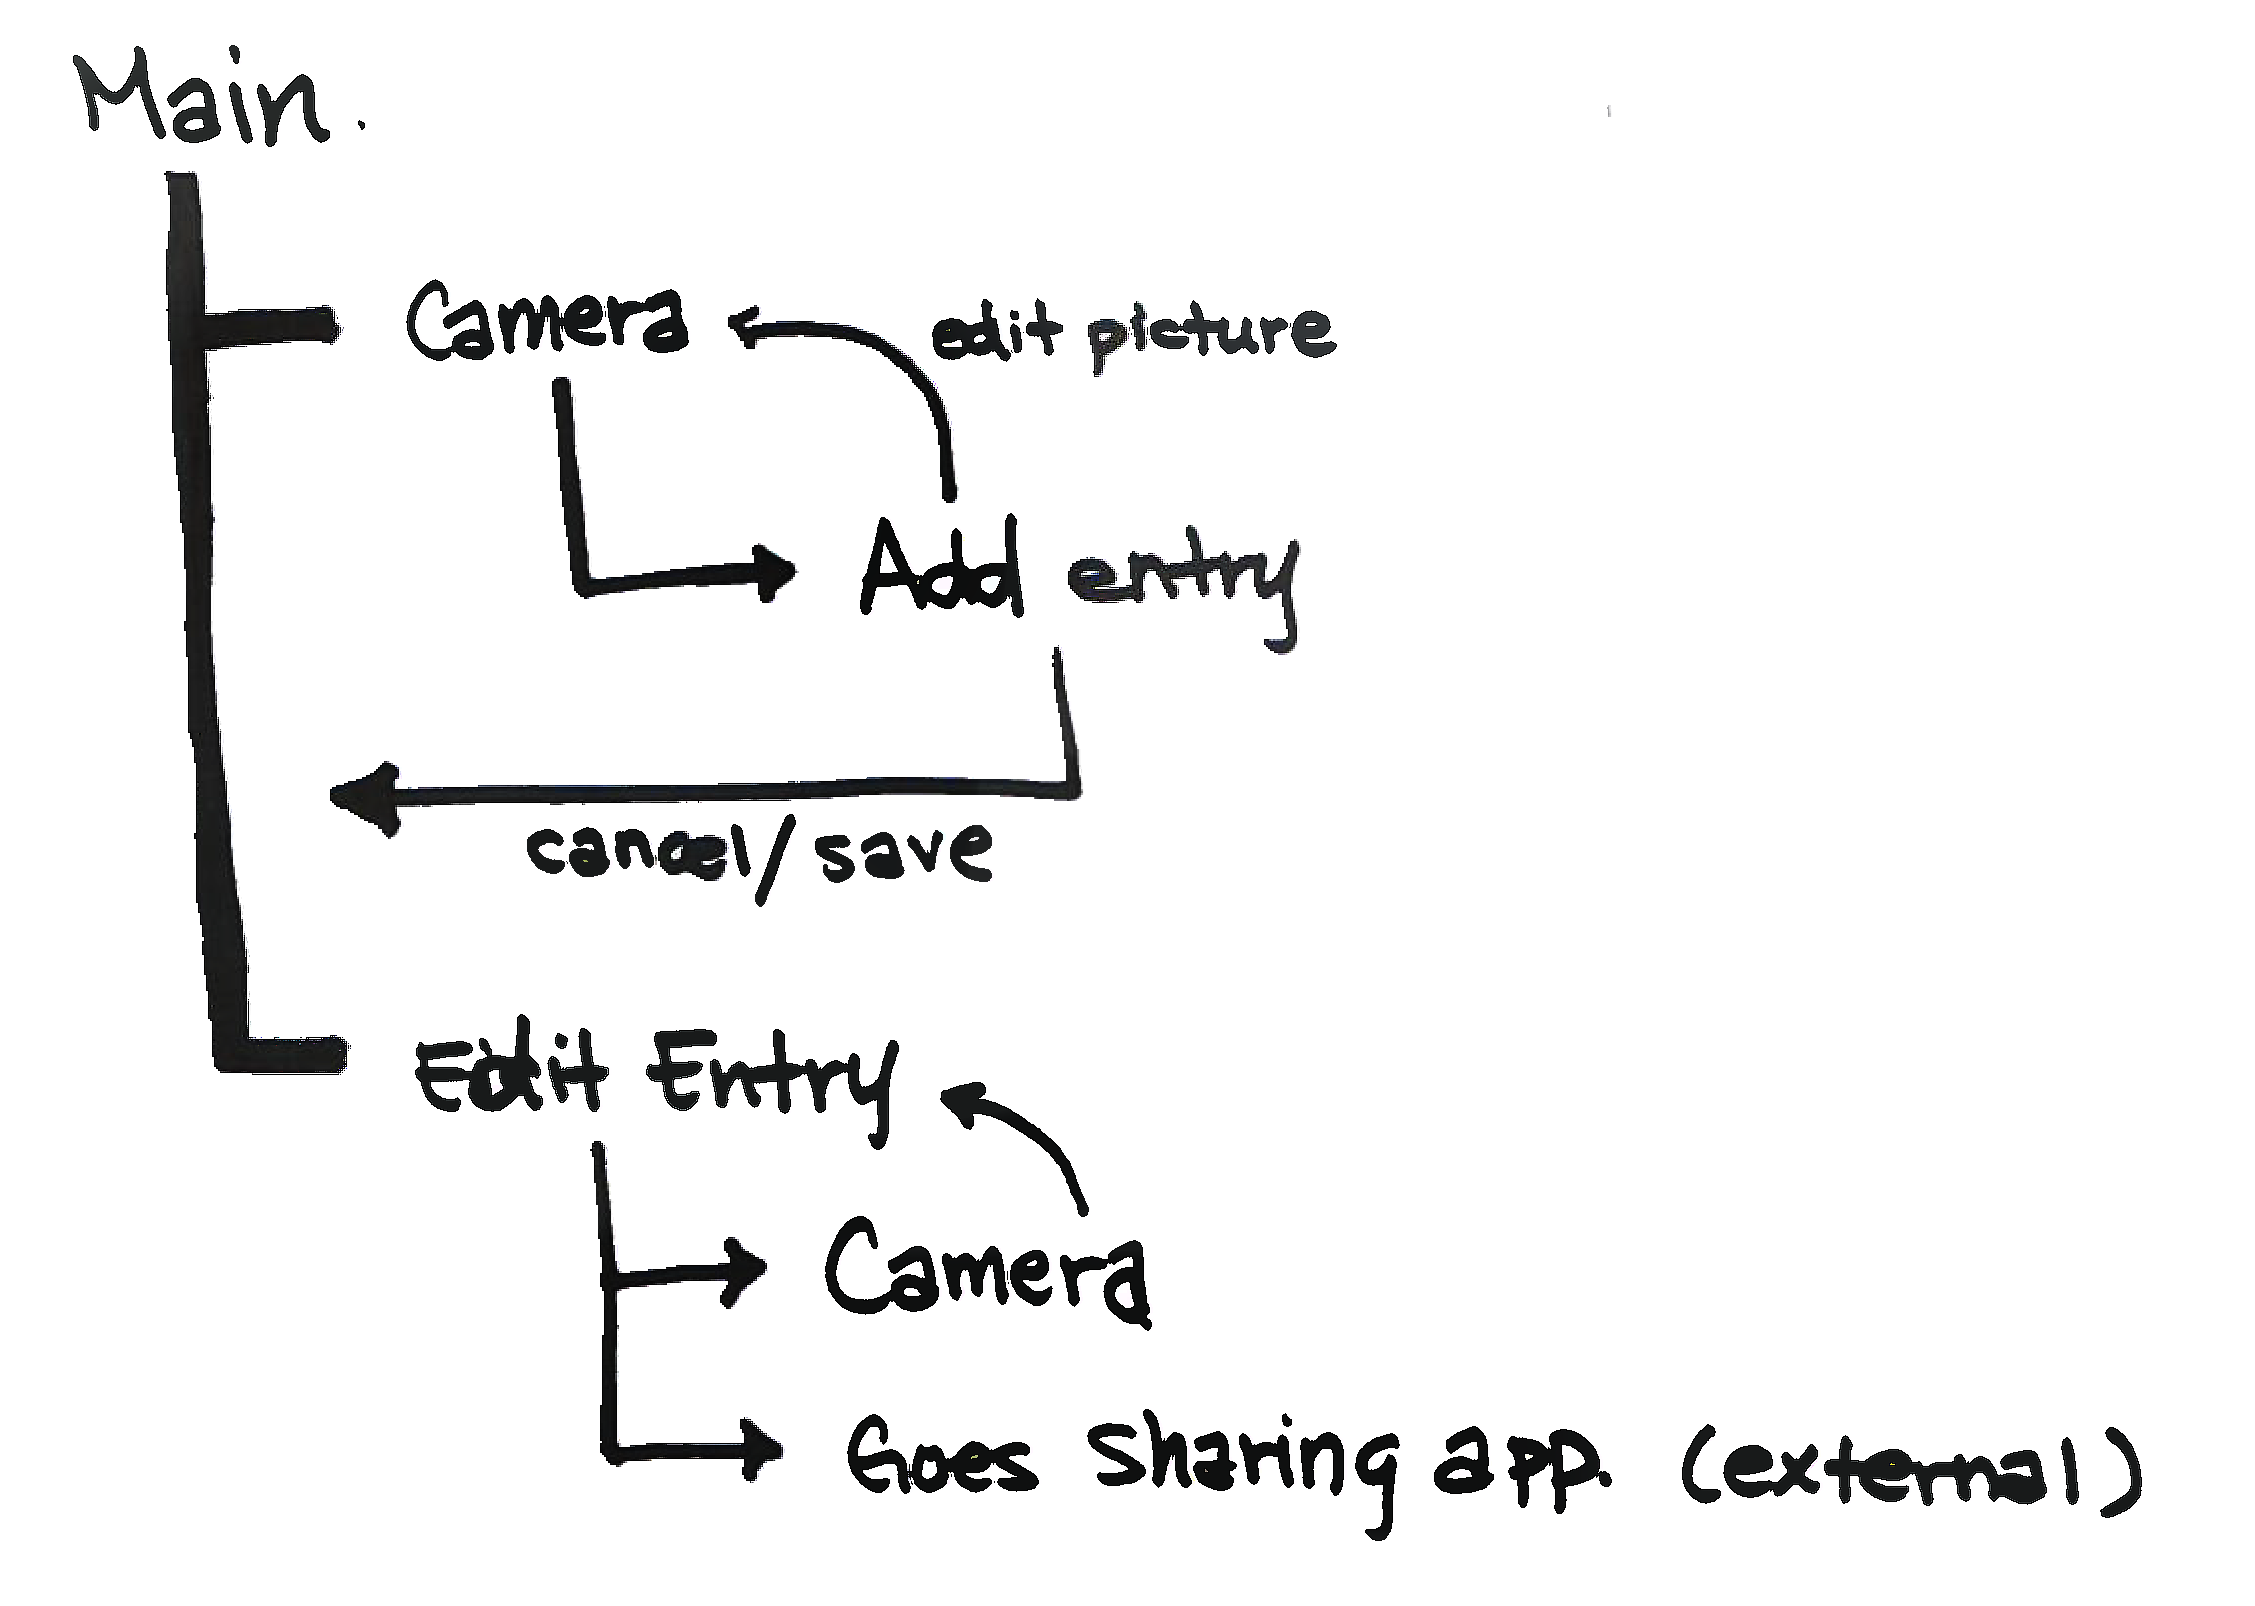 Main.
Camera
edit picture
Add entry
cancel/save
Edit Entry
Camera
Goes Sharing app. (external)